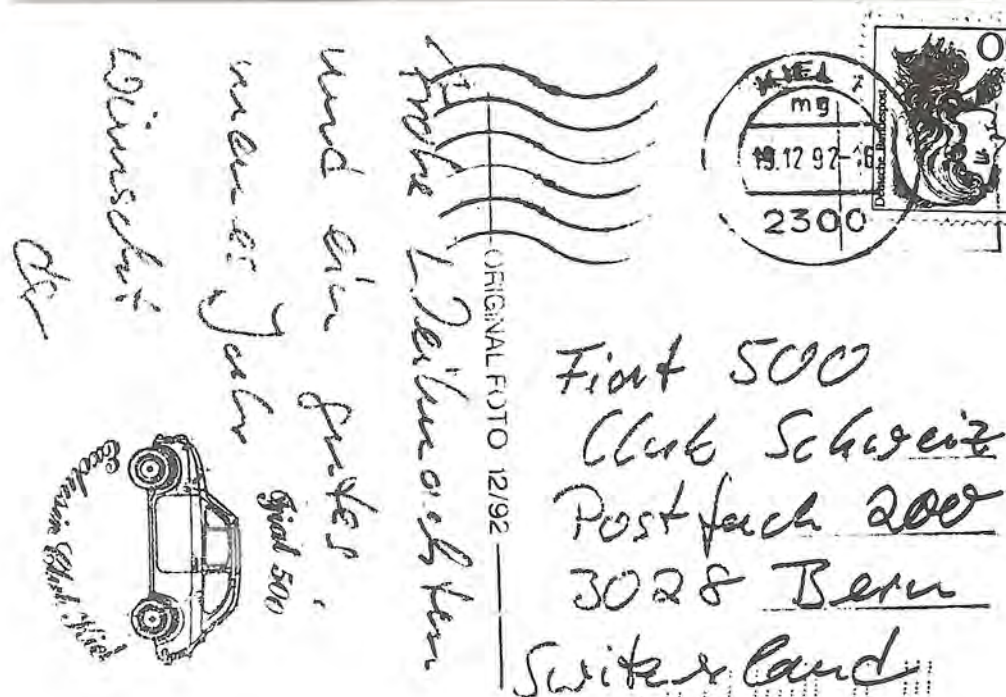 Frohe Weihnachten
und ein gutes
neues Jahr
Wünscht
der
Fiat 500
ORIGINAL FOTO 12/92
KIEL
mg
19.12.92-16
2300
Deutsche Bundespost
Fiat 500
Club Schweiz
Postfach 200
3028 Bern
Switzerland